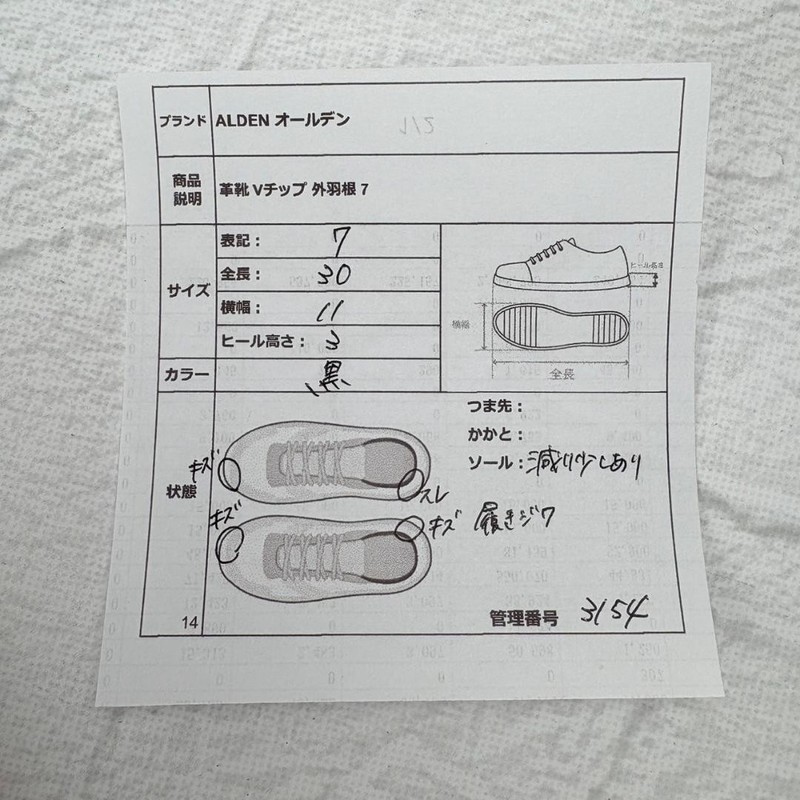 ブランド ALDEN オールデン
商品説明 革靴 Vチップ 外羽根 7
サイズ
表記： 7
全長： 30
横幅： 11
ヒール高さ： 3
ヒール高さ
横幅
全長
カラー 黒
状態
つま先：
かかと：
ソール： 減り少しあり
キズ
スレ
キズ
キズ
履きジワ
14
管理番号 3154